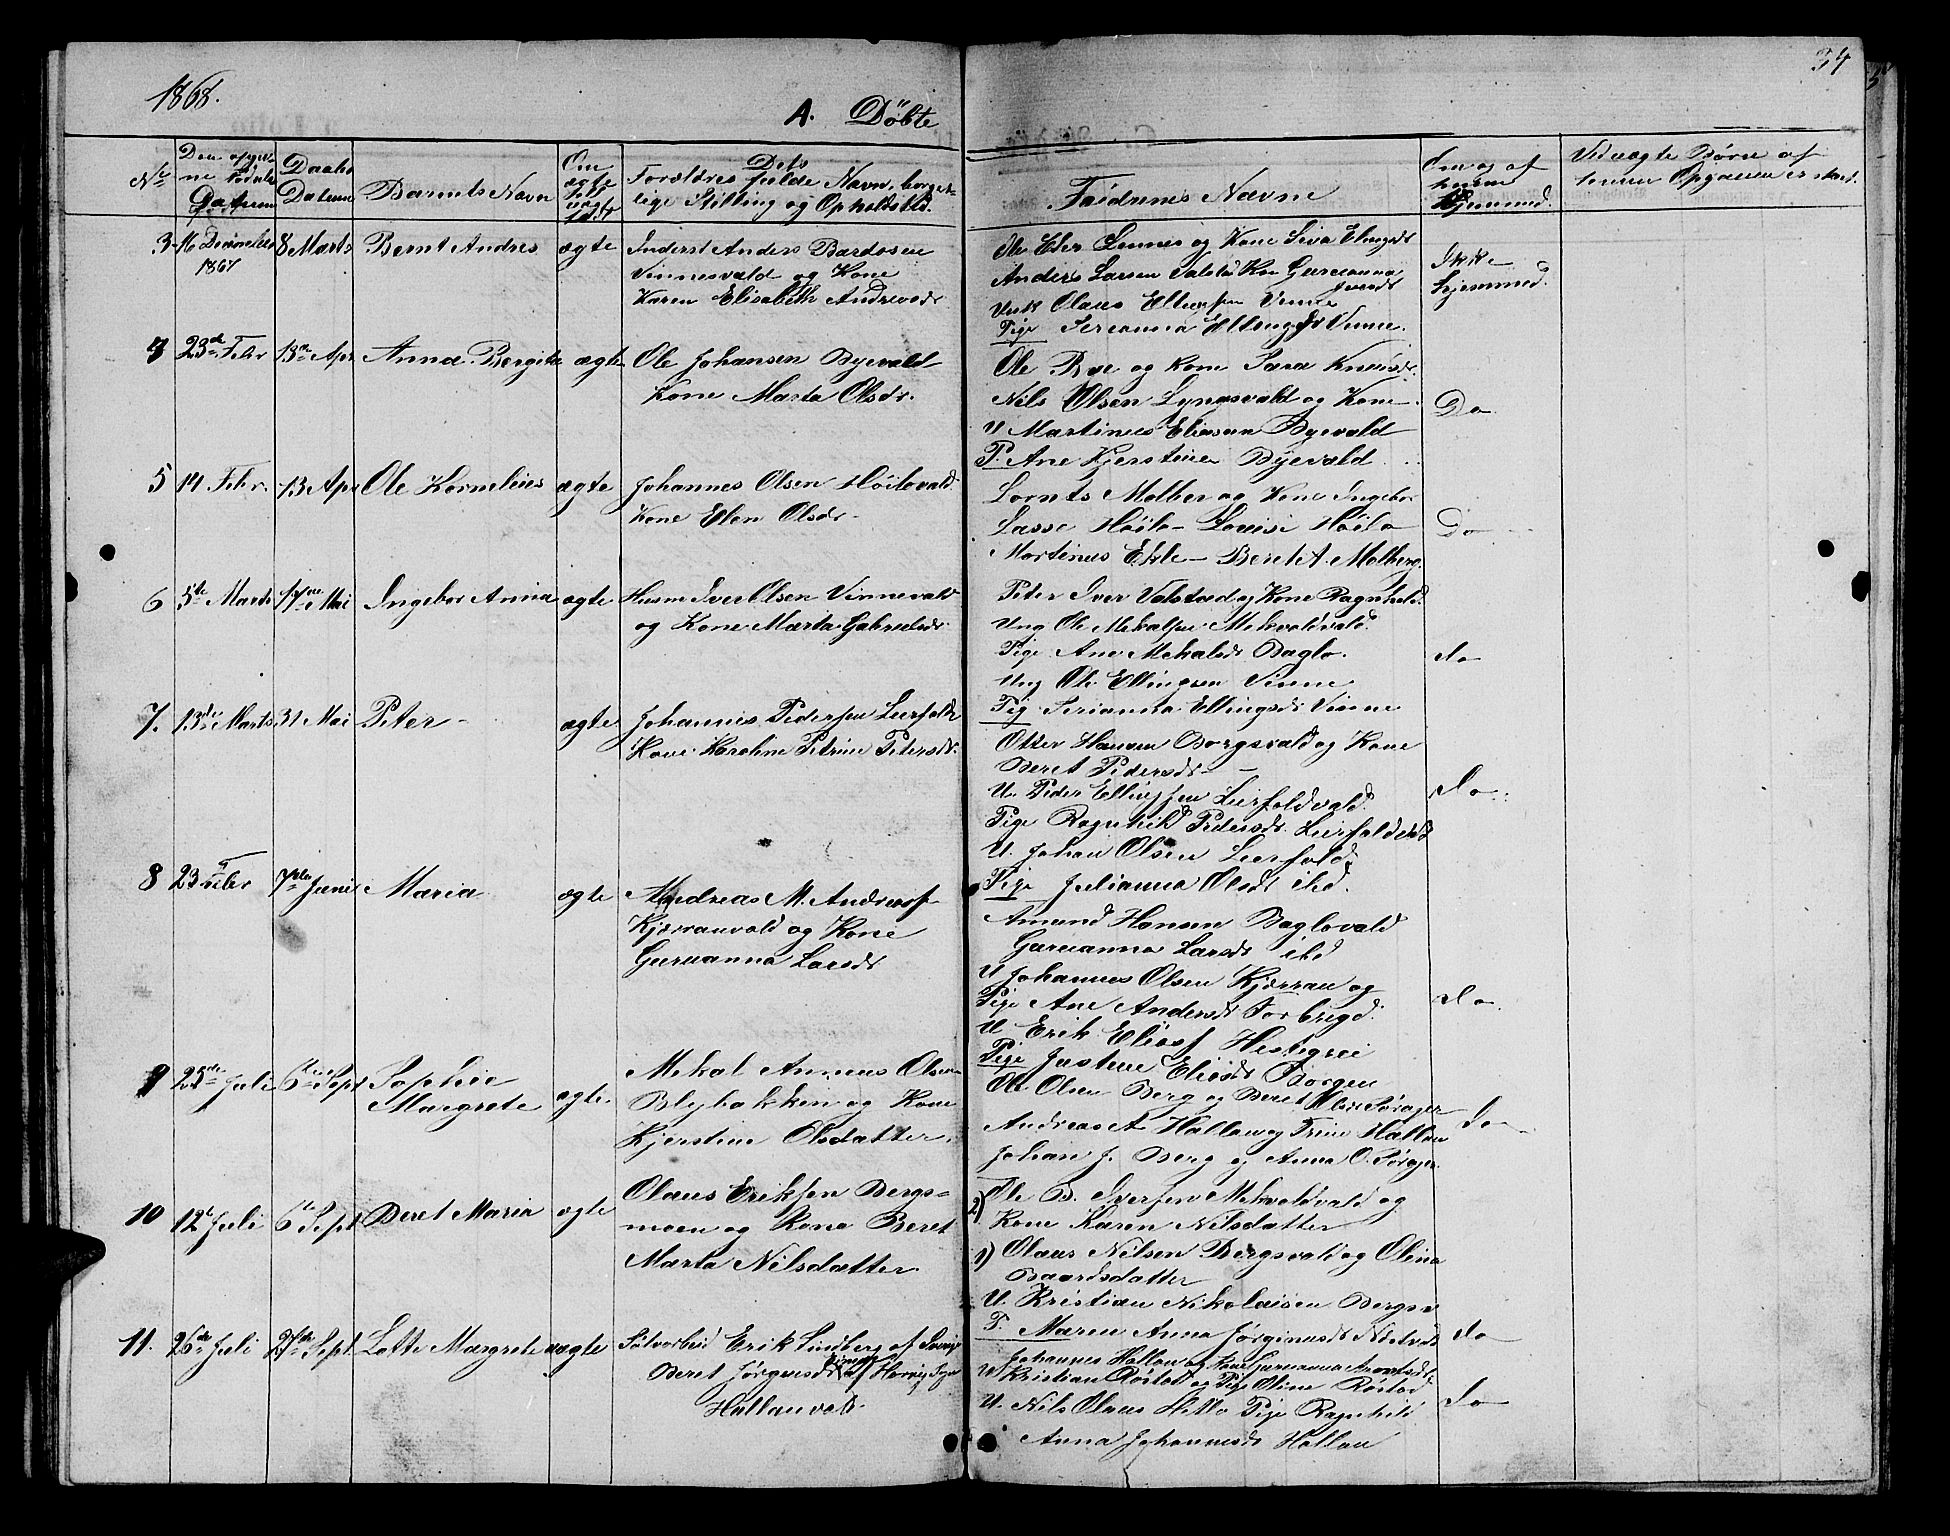 1868.
34
A. Döbte
No
Datum
Daabs
Datum
Barnets Navn
Om
ægte
eller
uægte
Dets
Forældres fulde Navn, borger-
lige Stilling og Opholdsted.
Faddernes Navne
Om og af
hvem
hjemmed.
Ved uægte Börn af
3 16 December
1867
8 Marts
Bernt Andres
ægte
Inderst Anders Bardosen
Vinnesvald og Kone
Karen Elisabeth Andreasdr
Anders Larsen Valstad Kone Gurianna
Olaus Ellingsen Vinne
Pige Serianna Ellingsdr Vinne.
Ikke
hjemmed.
4 23de Febr
13de Apr
Anna Bergita
ægte
Ole Johansen Byevald
Kone Marta Olsdr.
Ole Bye og kone Sara
Nils Olsen Lyngsvald og Kone
U Martinus Eliasen Byevald
P. Ane Kjerstine Byevald
Do
5 14 Febr.
13 Apr
Ole Kornelius
ægte
Johannes Olsen Höilovald
Kone Elen Olsdr
Lornts Molber og Kone Ingebor
Lasse Höilo - Lovise Höilo
Martinus Ekle - Beret A. Molberg
Do
6 5te Marts
17de Mai
Ingebor Anna
ægte
Husm Iver Olsen Vinnevald
og Kone Marta Gabrielsdr
Peter Iver Valstad og Kone Ragnhild
Ung Ole Mekalsen Mekvoldvald
Pige Ane Mekalsdr Baglo.
Ung Ole Ellingsen Vinne
Pig Serianna Ellingsdr Vinne
do
7. 13de Marts
31 Mai
Peter
ægte
Johannes Pedersen Leirfald
Kone Karoline Petrine Petersdr.
Otter Hansen Borgsvald og Kone
Beret Pedersdr
U. Peder Ellingsen Leirfaldvald
Pige Ragnhild Pedersdr. Leirfaldvald
U. Johan Olsen Leirfald
Pige Julianna Olsdr ibd.
do
8 23 Febr
7de Juni
Maria
ægte
Andreas M. Andreasf
Kjærranvald og Kone
Gurianna Larsdr
Amund Hansen Baglovald
Gurianna Larsdr ibd
U Johannes Olsen Kjærran og
Pige Ane Andersdr Forbregd.
U Erik Eliasf Hestegrei
Pige Justine Eliasdr Borgen
do
9 23de Juli
6te Sept
Sophie
Margrete
ægte
Mekal Anneus Olsen
Blybakken og Kone
Kjerstine Olsdatter
Ole Olsen Berg og Beret
Andreas A Hallan og Trine Hallan
Johan J. Berg og Anna O.
do
10 12te Juli
6te Sept
Beret Maria
ægte
Olaus Eriksen Bergs-
moen og Kone Beret
Marta Nilsdatter
2) Ole B. Iversen Mekvoldvald og
Kone Karen Nilsdatter
1) Olaus Nilsen Bergsvald og Olina
Baardsdatter
U. Kristian Nikolaisen Bergsv
P. Maren Anna Jörginusdr
do
11. 26de Juli
27de Sept
Lotte Margrete
uægte
Erik Lindberg af
Beret
Hallanvald.
Johannes Hallan og Kone Gurianna
U Kristian Röstad og Pige Oline Röstad
U. Nils Olaus Hello Pige Ragnhild
Anna Johannesdr Hallan
do